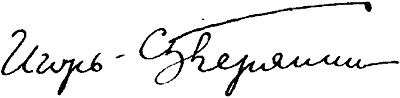 Игорь-Северянин